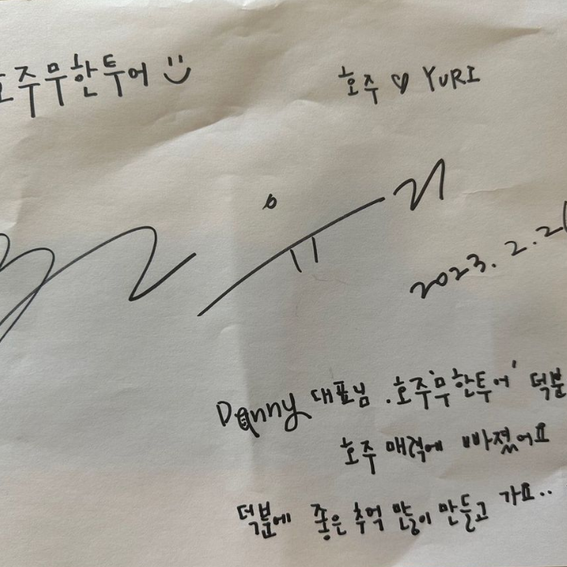 호주무한투어 :)
호주 ♡ YURI
유리
2023. 2. 2
Danny 대표님. 호주'무한투어' 덕분
호주 매력에 빠졌어요
덕분에 좋은 추억 많이 만들고 가요..